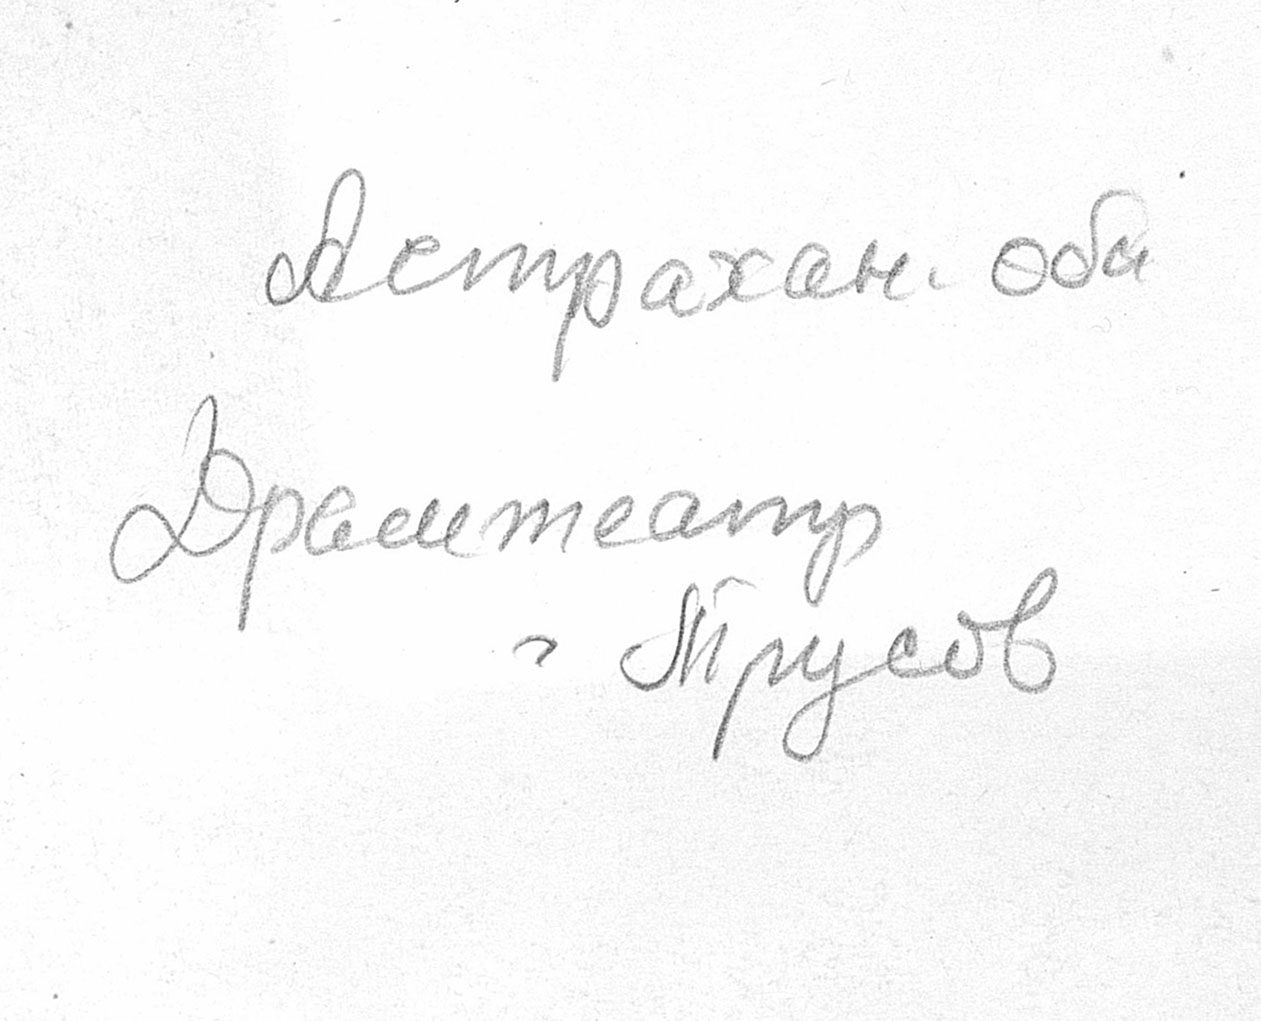 Астрахан. обл
Драмтеатр
Трусов